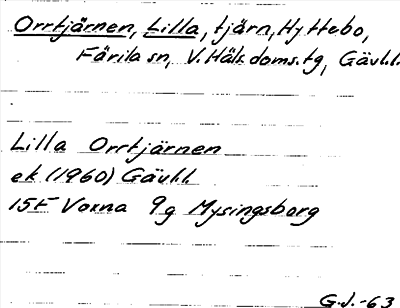 Orrtjärnen, Lilla, tjärn, Hyttebo,
Färila sn, V. Häls. doms. tg, Gävl.l.
Lilla Orrtjärnen
ek (1960) Gävl.l.
15F Voxna 9g Mysingsborg
G.J.-63